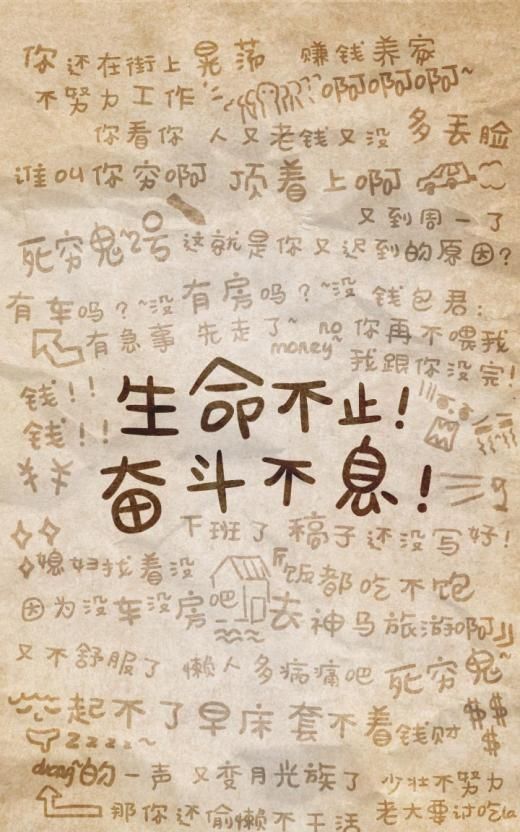 你还在街上晃荡 赚钱养家
不努力工作 啊啊啊啊~
你看你 人又老钱又没 多丢脸
谁叫你穷啊 顶着上啊
又到周一了
死穷鬼~2号 这就是你又迟到的原因?
有车吗?~没 有房吗?~没 钱包君:
有急事 先走了~ no money~ 你再不喂我
我跟你没完!
钱!!
钱!!
生命不止!
奋斗不息!
下班了 稿子还没写好!
媳妇找着没 饭都吃不饱
因为没车没房吧 去神马旅游啊
又不舒服了 懒人多病痛吧 死穷鬼~
起不了早床 套不着钱财 $$$
Zzzz~
dang~的一声 又变月光族了 少壮不努力
那你还偷懒不干活 老大要讨吃la